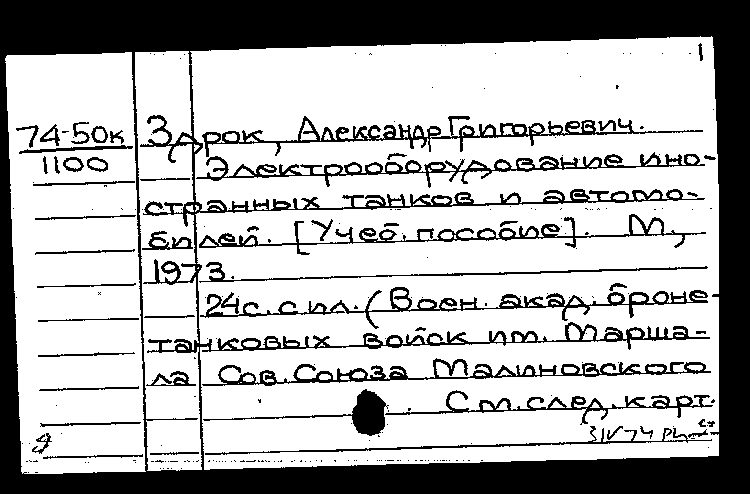 1
74-50к Здрок, Александр Григорьевич.
1100 Электрооборудование ино-
странных танков и автомо-
билей. [Учеб. пособие]. М.,
1973.
24с. с ил. (Воен. акад. броне-
танковых войск им. Марша-
ла Сов. Союза Малиновского
См. след. карт.
3/IV 74